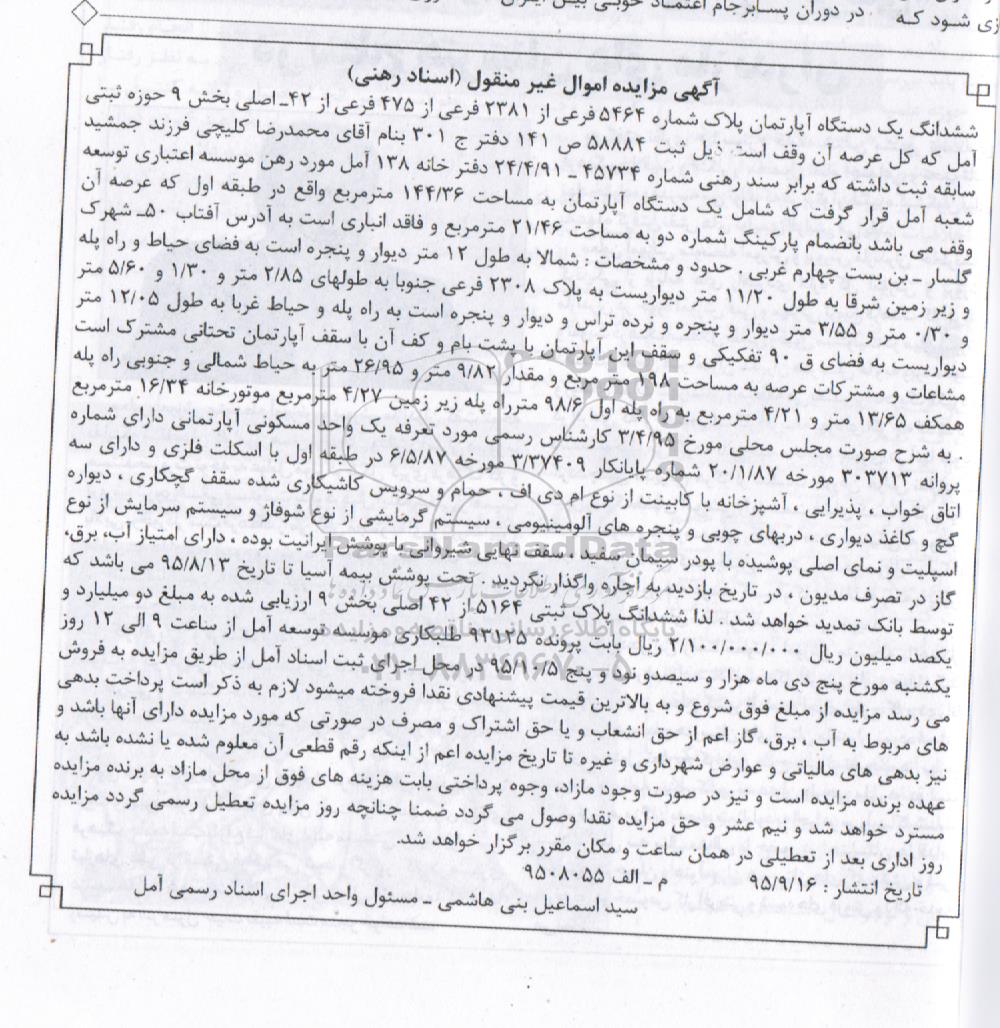 زی شود که در دوران پسابرجام اعتماد خوبی بین
آگهی مزایده اموال غیر منقول (اسناد رهنی)
ششدانگ یک دستگاه آپارتمان پلاک شماره ۵۴۶۴ فرعی از ۲۳۸۱ فرعی از ۴۷۵ فرعی از ۴۲ـ اصلی بخش ۹ حوزه ثبتی
آمل که کل عرصه آن وقف است ذیل ثبت ۵۸۸۸۴ ص ۱۴۱ دفتر ج ۳۰۱ بنام آقای محمدرضا کلیچی فرزند جمشید
سابقه ثبت داشته که برابر سند رهنی شماره ۴۵۷۳۴ ـ ۲۴/۴/۹۱ دفتر خانه ۱۳۸ آمل مورد رهن موسسه اعتباری توسعه
شعبه آمل قرار گرفت که شامل یک دستگاه آپارتمان به مساحت ۱۴۴/۳۶ مترمربع واقع در طبقه اول که عرصه آن
وقف می باشد بانضمام پارکینگ شماره دو به مساحت ۲۱/۴۶ مترمربع و فاقد انباری است به آدرس آفتاب ۵۰ـ شهرک
گلسار ـ بن بست چهارم غربی . حدود و مشخصات : شمالا به طول ۱۲ متر دیوار و پنجره است به فضای حیاط و راه پله
و زیر زمین شرقا به طول ۱۱/۲۰ متر دیواریست به پلاک ۲۳۰۸ فرعی جنوبا به طولهای ۲/۸۵ متر و ۱/۳۰ و ۵/۶۰ متر
و ۰/۳۰ متر و ۳/۵۵ متر دیوار و پنجره و نرده تراس و دیوار و پنجره است به راه پله و حیاط غربا به طول ۱۲/۰۵ متر
دیواریست به فضای ق ۹۰ تفکیکی و سقف این آپارتمان با پشت بام و کف آن با سقف آپارتمان تحتانی مشترک است
مشاعات و مشترکات عرصه به مساحت ۱۹۸ مترمربع و مقدار ۹/۸۲ متر و ۲۶/۹۵ متر به حیاط شمالی و جنوبی راه پله
همکف ۱۳/۶۵ متر و ۴/۲۱ مترمربع به راه پله اول ۹۸/۶ مترراه پله زیر زمین ۴/۲۷ مترمربع موتورخانه ۱۶/۳۴ مترمربع
. به شرح صورت مجلس محلی مورخ ۳/۴/۹۵ کارشناس رسمی مورد تعرفه یک واحد مسکونی آپارتمانی دارای شماره
پروانه ۳۰۳۷۱۳ مورخه ۲۰/۱/۸۷ شماره پایانکار ۳/۳۷۴۰۹ مورخه ۶/۵/۸۷ در طبقه اول با اسکلت فلزی و دارای سه
اتاق خواب ، پذیرایی ، آشپزخانه با کابینت از نوع ام دی اف ، حمام و سرویس کاشیکاری شده سقف گچکاری ، دیواره
گچ و کاغذ دیواری ، دربهای چوبی و پنجره های آلومینیومی ، سیستم گرمایشی از نوع شوفاژ و سیستم سرمایش از نوع
اسپلیت و نمای اصلی پوشیده با پودر سیمان سفید ، سقف نهایی شیروانی با پوشش ایرانیت بوده ، دارای امتیاز آب، برق،
گاز در تصرف مدیون ، در تاریخ بازدید به اجاره واگذار نگردید . تحت پوشش بیمه آسیا تا تاریخ ۹۵/۸/۱۳ می باشد که
توسط بانک تمدید خواهد شد . لذا ششدانگ پلاک ثبتی ۵۱۶۴ از ۴۲ اصلی بخش ۹ ارزیابی شده به مبلغ دو میلیارد و
یکصد میلیون ریال ۲/۱۰۰/۰۰۰/۰۰۰ ریال بابت پرونده ۹۳۰۲۵ طلبکاری موسسه توسعه آمل از ساعت ۹ الی ۱۲ روز
یکشنبه مورخ پنج دی ماه هزار و سیصدو نود و پنج ۹۵/۱۰/۵ در محل اجرای ثبت اسناد آمل از طریق مزایده به فروش
می رسد مزایده از مبلغ فوق شروع و به بالاترین قیمت پیشنهادی نقدا فروخته میشود لازم به ذکر است پرداخت بدهی
های مربوط به آب ، برق، گاز اعم از حق انشعاب و یا حق اشتراک و مصرف در صورتی که مورد مزایده دارای آنها باشد و
نیز بدهی های مالیاتی و عوارض شهرداری و غیره تا تاریخ مزایده اعم از اینکه رقم قطعی آن معلوم شده یا نشده باشد به
عهده برنده مزایده است و نیز در صورت وجود مازاد، وجوه پرداختی بابت هزینه های فوق از محل مازاد به برنده مزایده
مسترد خواهد شد و نیم عشر و حق مزایده نقدا وصول می گردد. ضمنا چنانچه روز مزایده تعطیل رسمی گردد مزایده
روز اداری بعد از تعطیلی در همان ساعت و مکان مقرر برگزار خواهد شد.
تاریخ انتشار : ۹۵/۹/۱۶ م ـ الف ۹۵۰۸۰۵۵
سید اسماعیل بنی هاشمی ـ مسئول واحد اجرای اسناد رسمی آمل
ParsNamadData
پایگاه اطلاع رسانی مناقصه و مزایده
۰۲۱-۸۸۳۴۹۶۷۰-۵